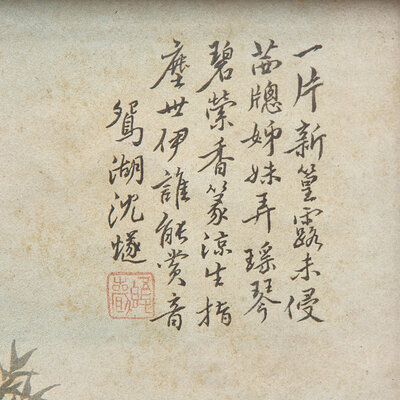 一片新篁露未侵
茜牕姊妹弄瑶琴
碧縈香篆涼生指
塵世伊誰能赏音
鴛湖沈燧